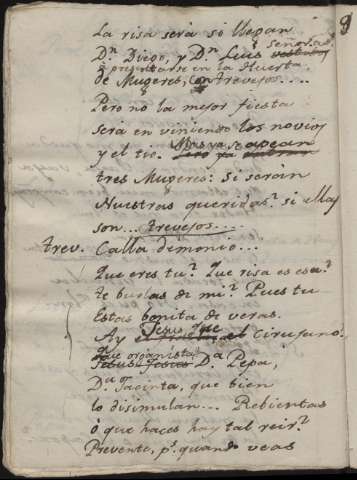 La risa será si llegan
Dn Diego, y Dn Luis señoras
á presentarse en la Huerta
de Mugeres, con trevejos....
Pero no la mejor fiesta
será en viniendo los novios
y el tio. Mas ya se apean
tres Mugeres: Si serán
Nuestras queridas? si ellas
son... trevejos...
trev. Calla demonio...
Que eres tu? Que risa es esa?
te burlas de mi? Pues tu
Estas bonita de veras.
Ay Jesus que Cirujano.
que organista! Da Pepa,
Da Jacinta, que bien
lo disimulan... Rebientas
ó que haces hay tal reir?
Prevente, ps. quando veas